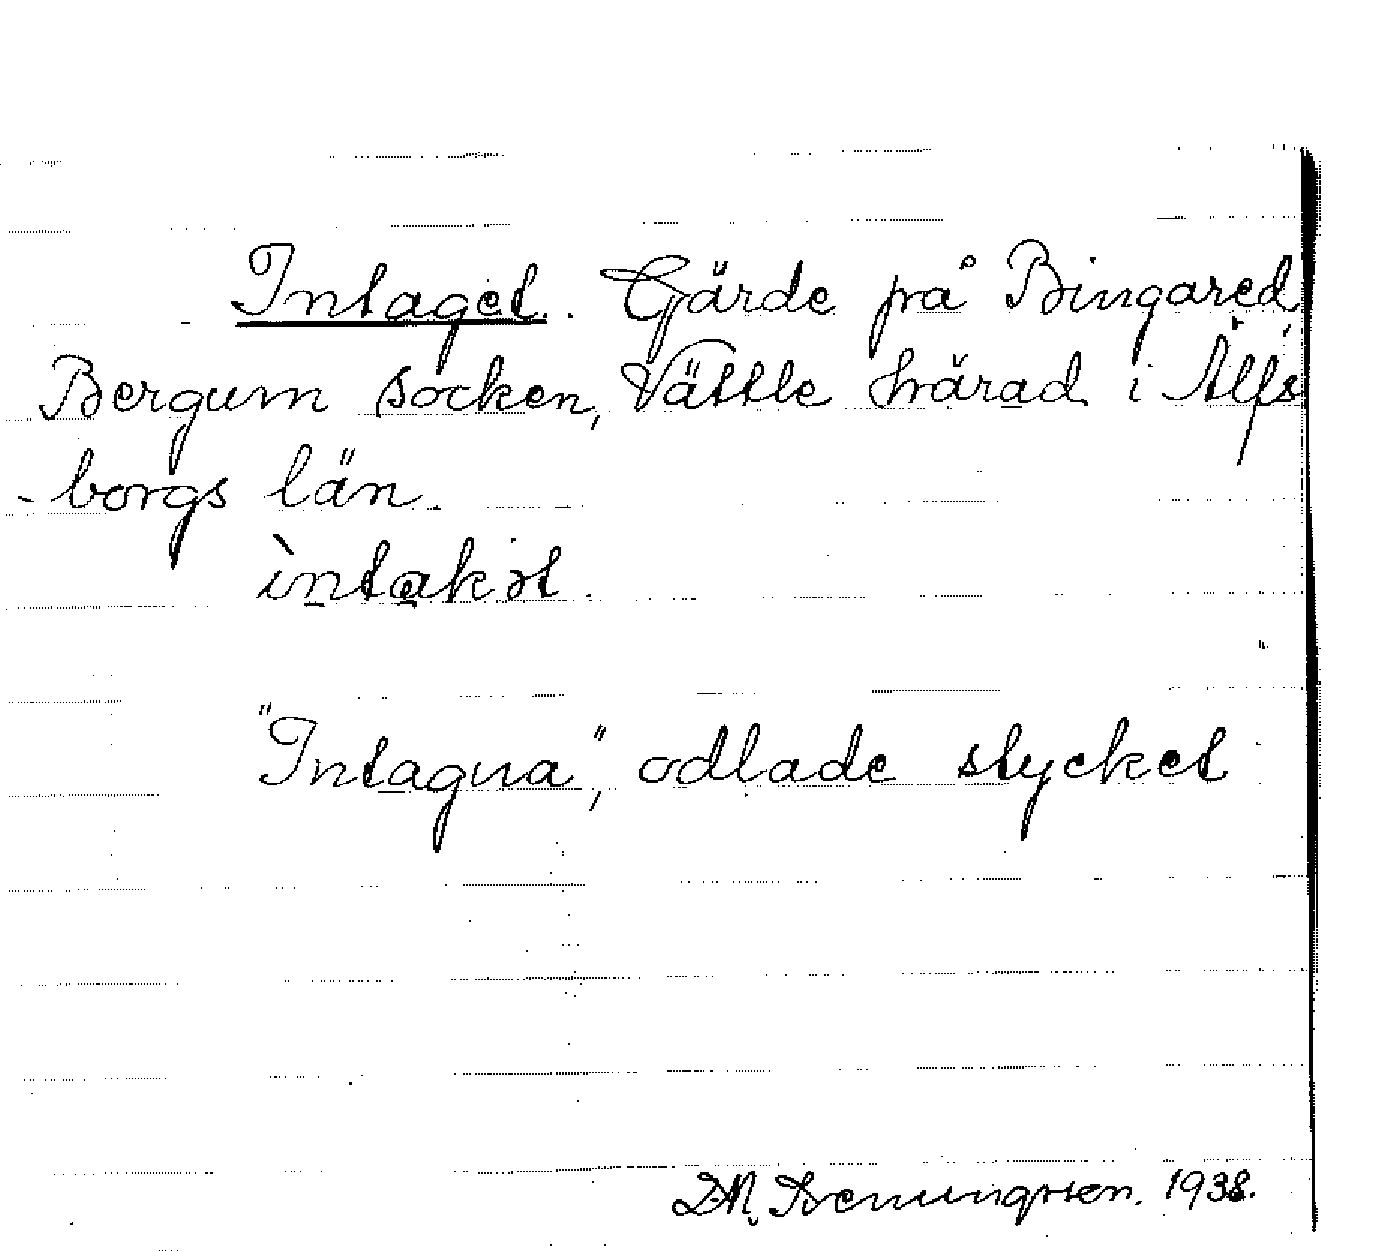 Intaget. Gärde på Bingared
Bergum socken, Vättle härad i Älfs
-borgs län.
ìntakət.
"Intagna", odlade stycket
1938.